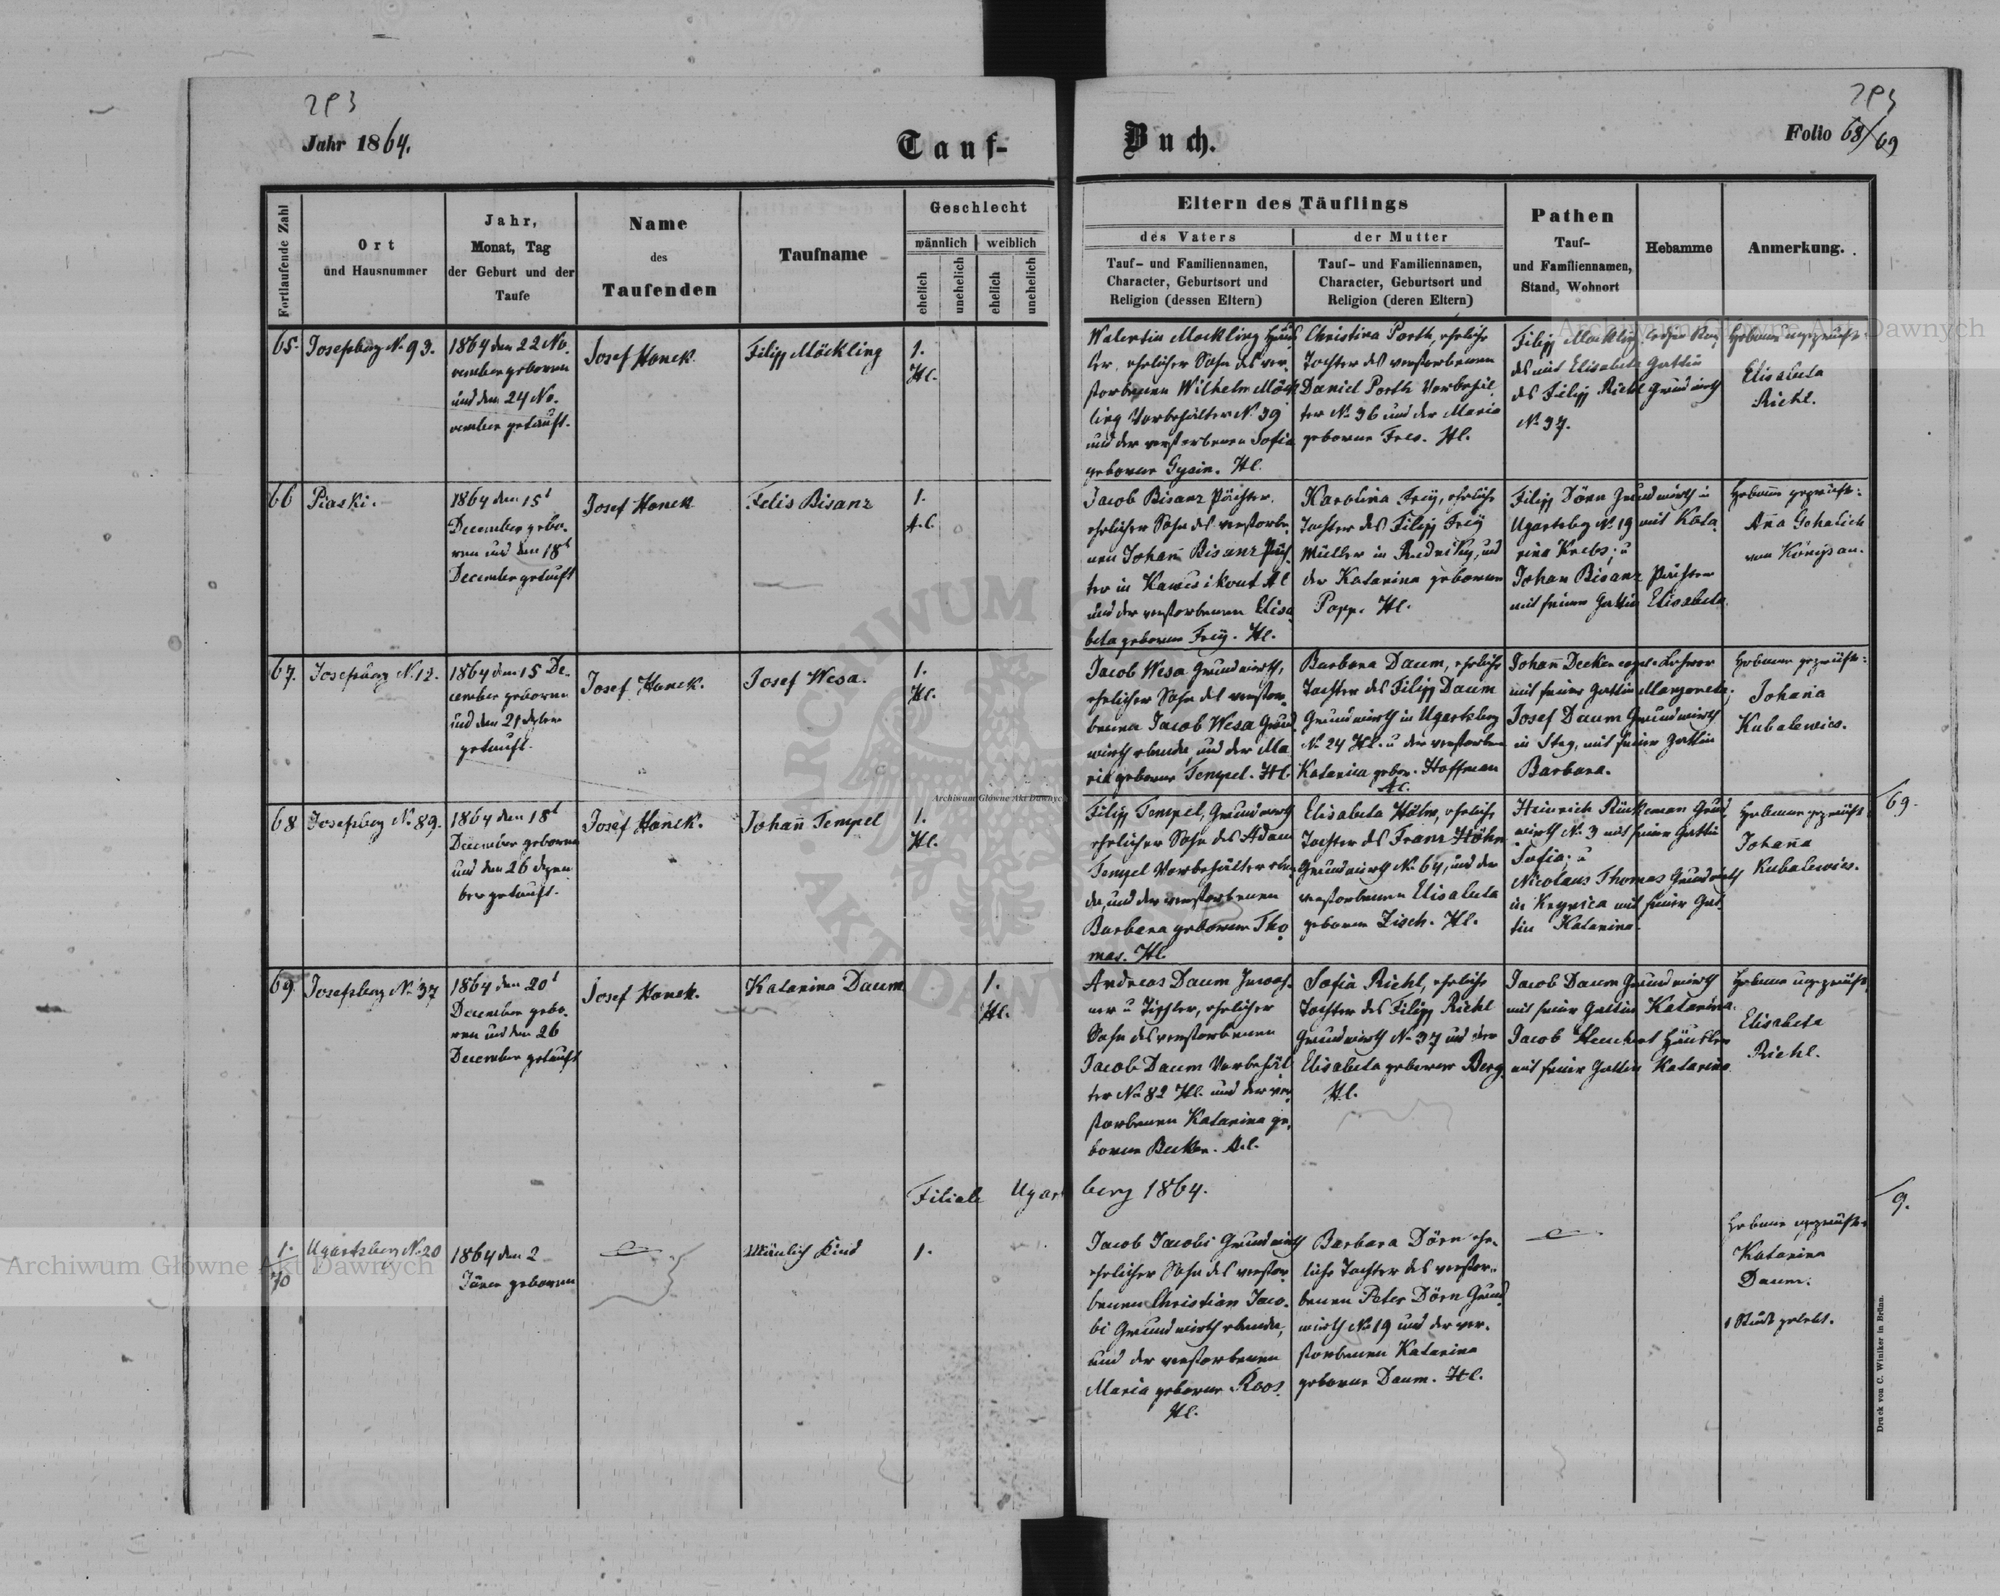 293
293
Jahr 1864.
Tauf-
Buch.
Folio 68/69
Fortlaufende Zahl
Ort
und Hausnummer
Jahr,
Monat, Tag
der Geburt und der
Taufe
Name
des
Taufenden
Taufname
Geschlecht
männlich
weiblich
ehelich
unehelich
ehelich
unehelich
Eltern des Täuflings
des Vaters
Tauf- und Familiennamen,
Character, Geburtsort und
Religion (dessen Eltern)
der Mutter
Tauf- und Familiennamen,
Character, Geburtsort und
Religion (deren Eltern)
Pathen
Tauf-
und Familiennamen,
Stand, Wohnort
Hebamme
Anmerkung.
65.
Josefsberg N. 93.
1864 den 22 No-
vember geboren
und den 24 No-
vember getauft.
Josef Hanek
Filipp Möckling
1.
Hl.
Walentin Mockling Häus
ler, ehelicher Sohn des ver-
storbenen Wilhelm Möck
ling Vorbehälter N. 39
und der verstorbenen Sofia
geborne Gysin. Hl.
Christina Porth, eheliche
Tochter des verstorbenen
Daniel Porth Vorbehäl
ter No 36 und der Maria
geborne Hl.
Filipp Mockling
des mit Elisabeta Gattin
des Filipp Riehl Grundwirth
No 37.
Hebame ungeprüft
Elisabeta
Riehl.
66
Piaski.
1864 den 15t
December gebo-
ren und den 18t
December getauft
Josef Hanek
Felix Bisanz
1.
A.C.
Jacob Bisanz Pächter.
ehelicher Sohn des verstorbe
nen Johann Bisanz Päch
ter in AC
und der verstorbenen Elisa
beta geborne Freÿ. Hl.
Karolina Freÿ, eheliche
Tochter des Filipp Freÿ
Müller in und
der Katarina geborene
Popp. Hl.
Filipp Dörn Grundwirth in
Ugartsbg No 19 mit Kata
rina Krebs; u
Johan Bisanz Pächter
mit seiner Gattin Elisabeta
Hebame geprüft:
Aña
von Königsau.
67.
Josefsberg N. 12.
1864 den 15 De-
cember geboren
und den 21 Dezbr
getauft.
Josef Hanek.
Josef Wesa.
1.
Hl.
Jacob Wesa Grundwirth,
ehelicher Sohn des verstor-
benen Jacob Wesa Grund
wirth ebenda, und der Ma
ria geborne Tempel. Hl.
Barbara Daum, eheliche
Tochter des Filipp Daum
Grundwirth in Ugartsberg
No 24 Hl. u der verstorben
Katarina gebor. Hoffman
Hl.
Johann Decker Lehrer
mit seiner Gattin Margareta;
Josef Daum Grundwirth
in Steg, mit seiner Gattin
Barbara.
Hebame geprüft:
Johana
Kubalewicz.
68
Josefsberg N. 89.
1864 den 18t
December geboren
und den 26 Dezem
ber getauft.
Josef Hanek.
Johañ Tempel
1.
Hl.
Filipp Tempel, Grundwirth
ehelicher Sohn des Adam
Tempel Vorbehälter eben
da, und der verstorbenen
Barbara geborene Tho
mas. Hl
Elisabeta Höhn, eheliche
Tochter des Franz Höhn
Grundwirth No 64, und der
verstorbenen Elisabeta
geborne Zisch. Hl.
Heinrich Grund
wirth No 3 mit seiner Gattin
Sofia; u
Nicolaus Thomas Grundwirth
in mit seiner Gat
tin Katarina.
Hebame geprüft
Johana
Kubalewicz.
69.
69
Josefsberg N. 37
1864 den 20t
December gebo-
ren und den 26
December getauft
Josef Hanek.
Katarina Daum
1.
Hl.
Andreas Daum Inwoh-
ner u Tischler, ehelicher
Sohn des verstorbenen
Jacob Daum Vorbehäl
ter No 82 Hl. und der ver
storbenen Katarina ge-
borne Becker. A.C.
Sofia Riehl, eheliche
Tochter des Filipp Riehl
Grundwirth No 37 und der
Elisabeta geborene Berg.
Hl.
Jacob Daum Grundwirth
mit seiner Gattin Katarina.
Jacob Häusler
mit seiner Gattin Katarina
Hebame ungeprüft
Elisabeta
Riehl.
Filiale Ugartsberg 1864.
9.
1.
70
Ugartsberg N. 20
1864 den 2
Jäner geboren
Mänlich Kind
1.
Jacob Jacobi Grundwirth
ehelicher Sohn des verstor-
benen Christian Jaco-
bi Grundwirth ebenda,
und der verstorbenen
Maria geborne Roos.
Hl.
Barbara Dörn ehe-
liche Tochter des verstor-
benen Peter Dörn Grund
wirth No 19 und der ver-
storbenen Katarina
geborne Daum. Hl.
Hebame ungeprüft
Katarina
Daum.
1 Stunde gelebt.
Druck von C. Winiker in Brünn.
Archiwum Główne Akt Dawnych
Archiwum Główne Akt Dawnych
Archiwum Główne Akt Dawnych
ARCHIWUM
AKT DAWNYCH